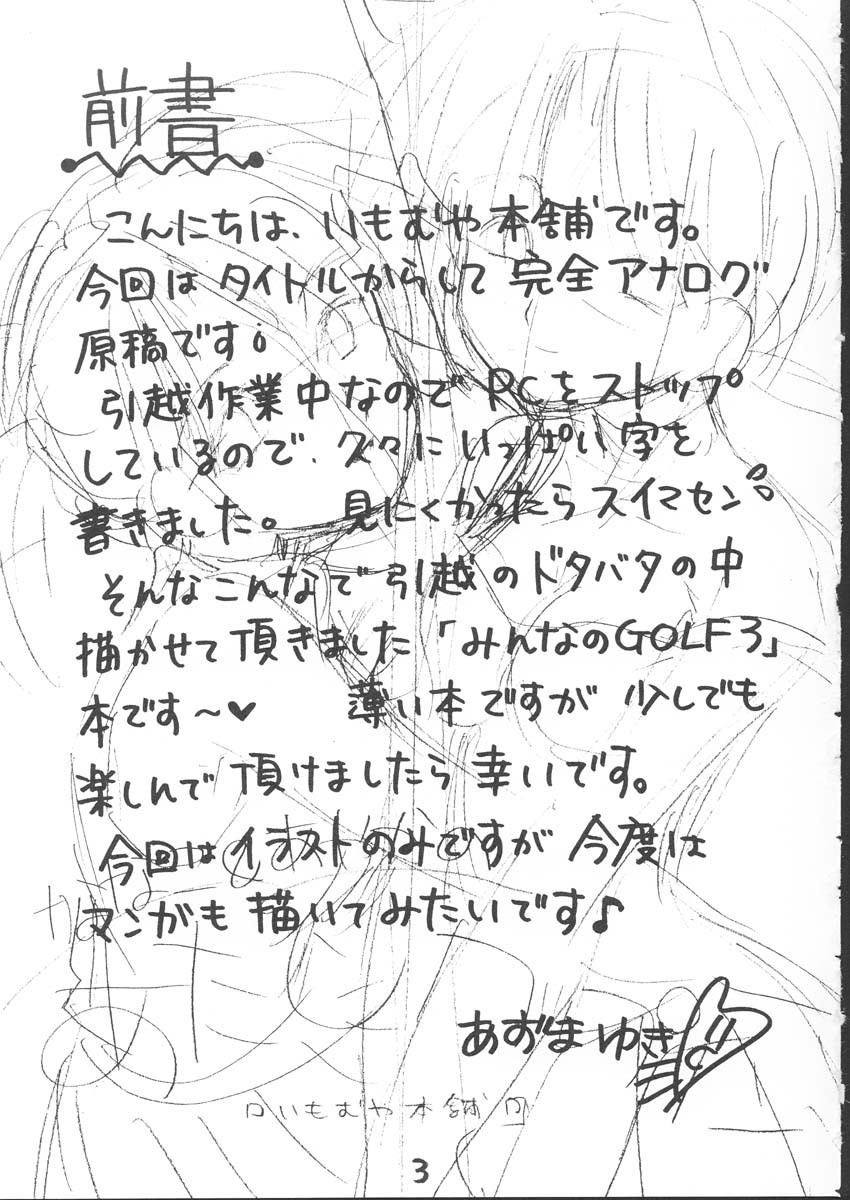 前書
こんにちは、いもむや本舗です。
今回はタイトルからして完全アナログ
原稿です!
引越作業中なのでPCをストップ
しているので、久々にいっぱい字を
書きました。 見にくかったらスイマセン
そんなこんなで引越のドタバタの中
描かせて頂きました「みんなのGOLF3」
本です〜♥ 薄い本ですが少しでも
楽しんで頂けましたら幸いです。
今回はイラストのみですが今度は
マンガも描いてみたいです♪
あずまゆき
いもむや本舗
3